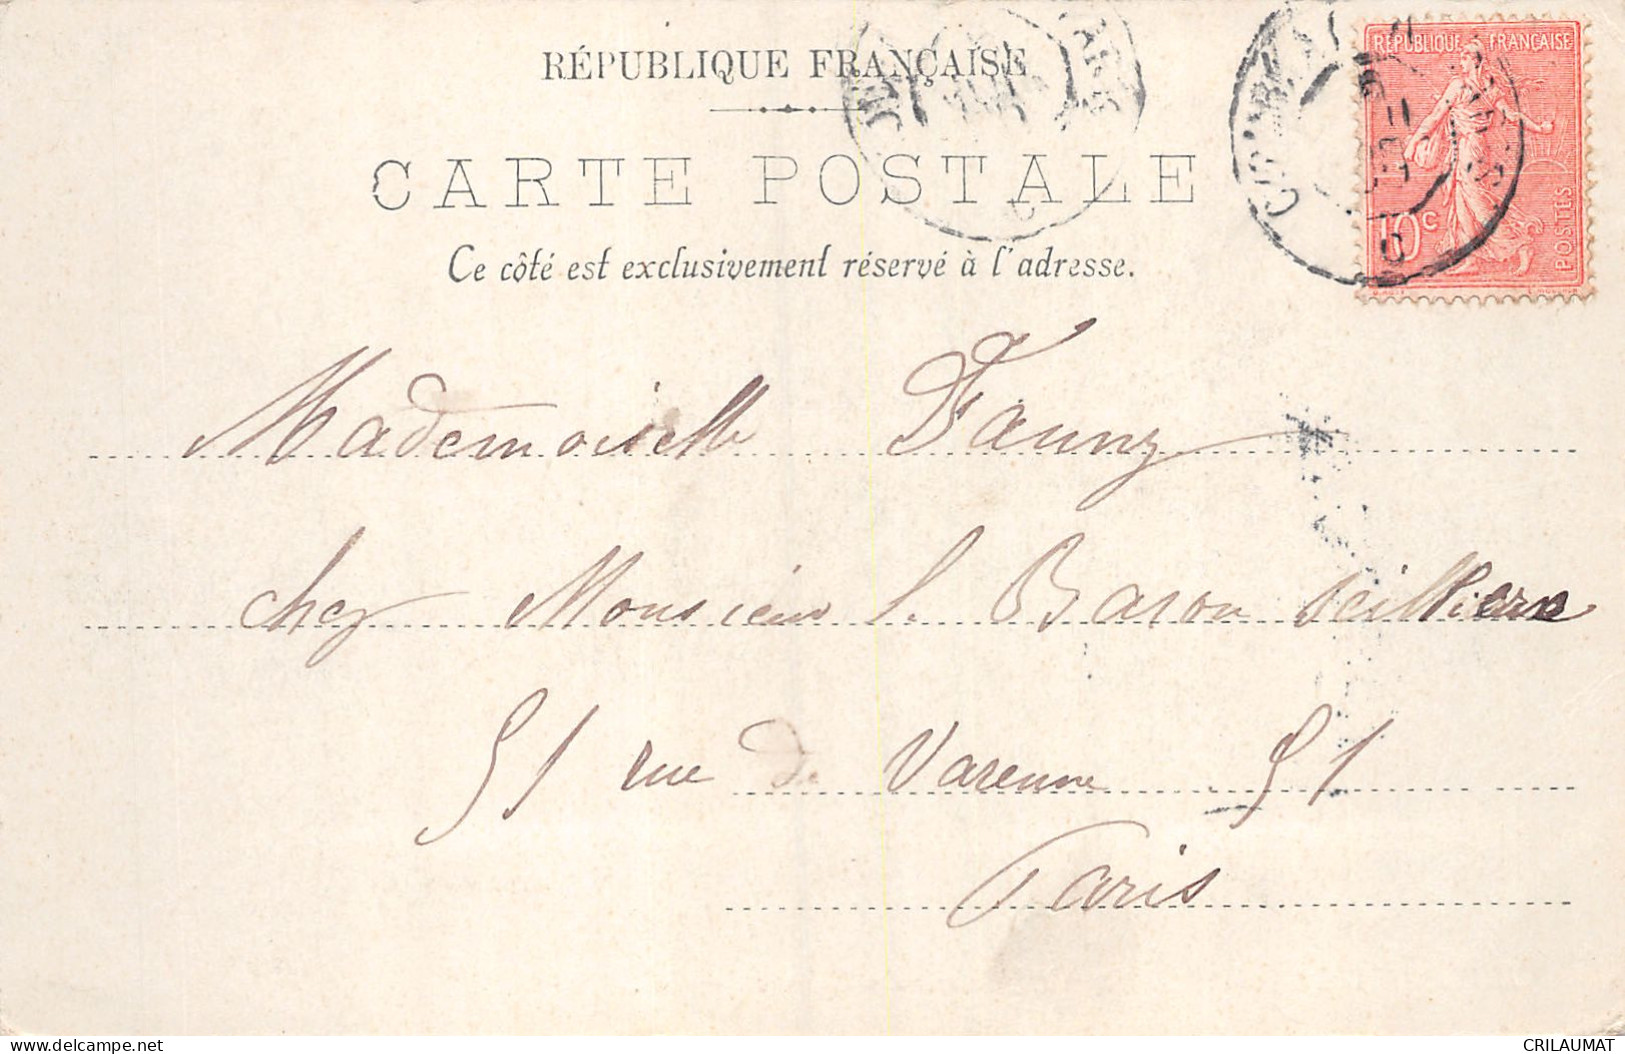 RÉPUBLIQUE FRANÇAISE
CARTE POSTALE
Ce côté est exclusivement réservé à l'adresse.
RÉPUBLIQUE FRANÇAISE
10c
POSTES
Mademoiselle Fanny
chez Monsieur l. Baron Seilliere
51 rue de Varenne 51
Paris
CRILAUMAT